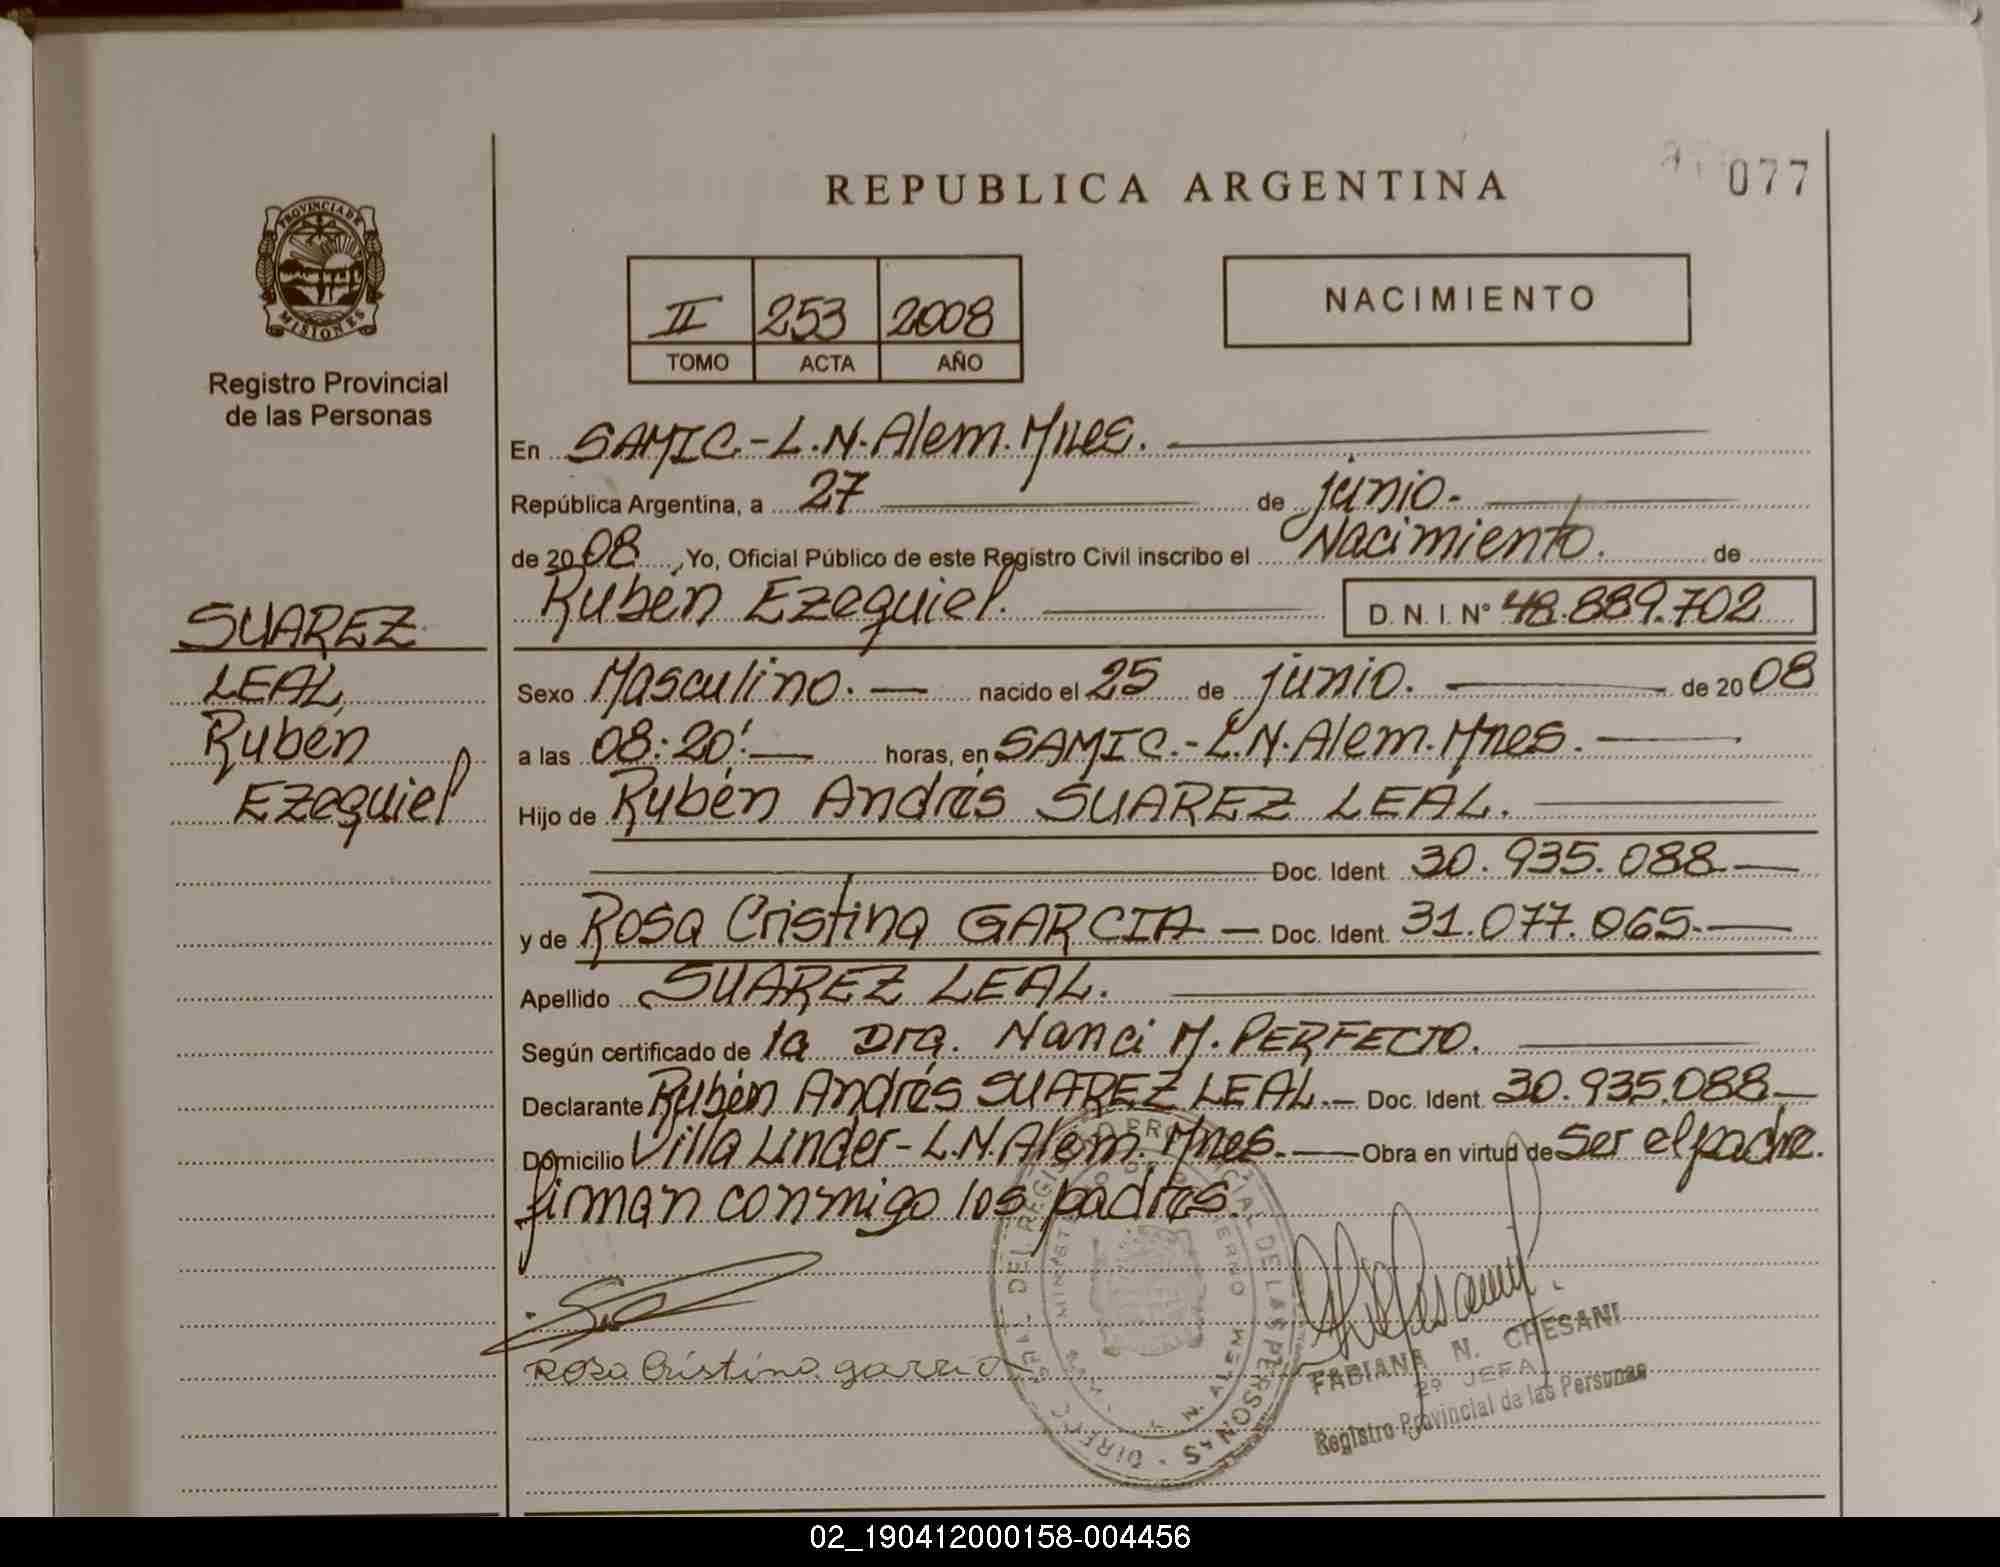 REPUBLICA ARGENTINA
077
PROVINCIA DE
MISIONES
Registro Provincial
de las Personas
II 253 2008
TOMO ACTA AÑO
NACIMIENTO
En SAMIC.-L.N.Alem.Mnes.
República Argentina, a 27 de junio.-
de 2008, Yo, Oficial Público de este Registro Civil inscribo el Nacimiento. de
Rubén Ezequiel. D. N. I. N° 48.889.702
SUAREZ
LEAL,
Rubén
Ezequiel
Sexo Masculino. nacido el 25 de junio. de 2008
a las 08:20'. horas, en SAMIC.-L.N.Alem.Mnes.
Hijo de Rubén Andrés SUAREZ LEAL.
Doc. Ident. 30.935.088
y de Rosa Cristina GARCIA Doc. Ident. 31.077.065.
Apellido SUAREZ LEAL.
Según certificado de la Dra. Nanci M. PERFECTO.
Declarante Rubén Andrés SUAREZ LEAL. Doc. Ident. 30.935.088
Domicilio Villa Linder-L.N.Alem.Mnes. Obra en virtud de Ser el padre.
firman conmigo los padres.
Rosa Cristina garcia
FABIANA N. CHESANI
2º JEFA
Registro Provincial de las Personas
DEL REGISTRO PROVINCIAL DE LAS PERSONAS
L. N. ALEM
02_190412000158-004456